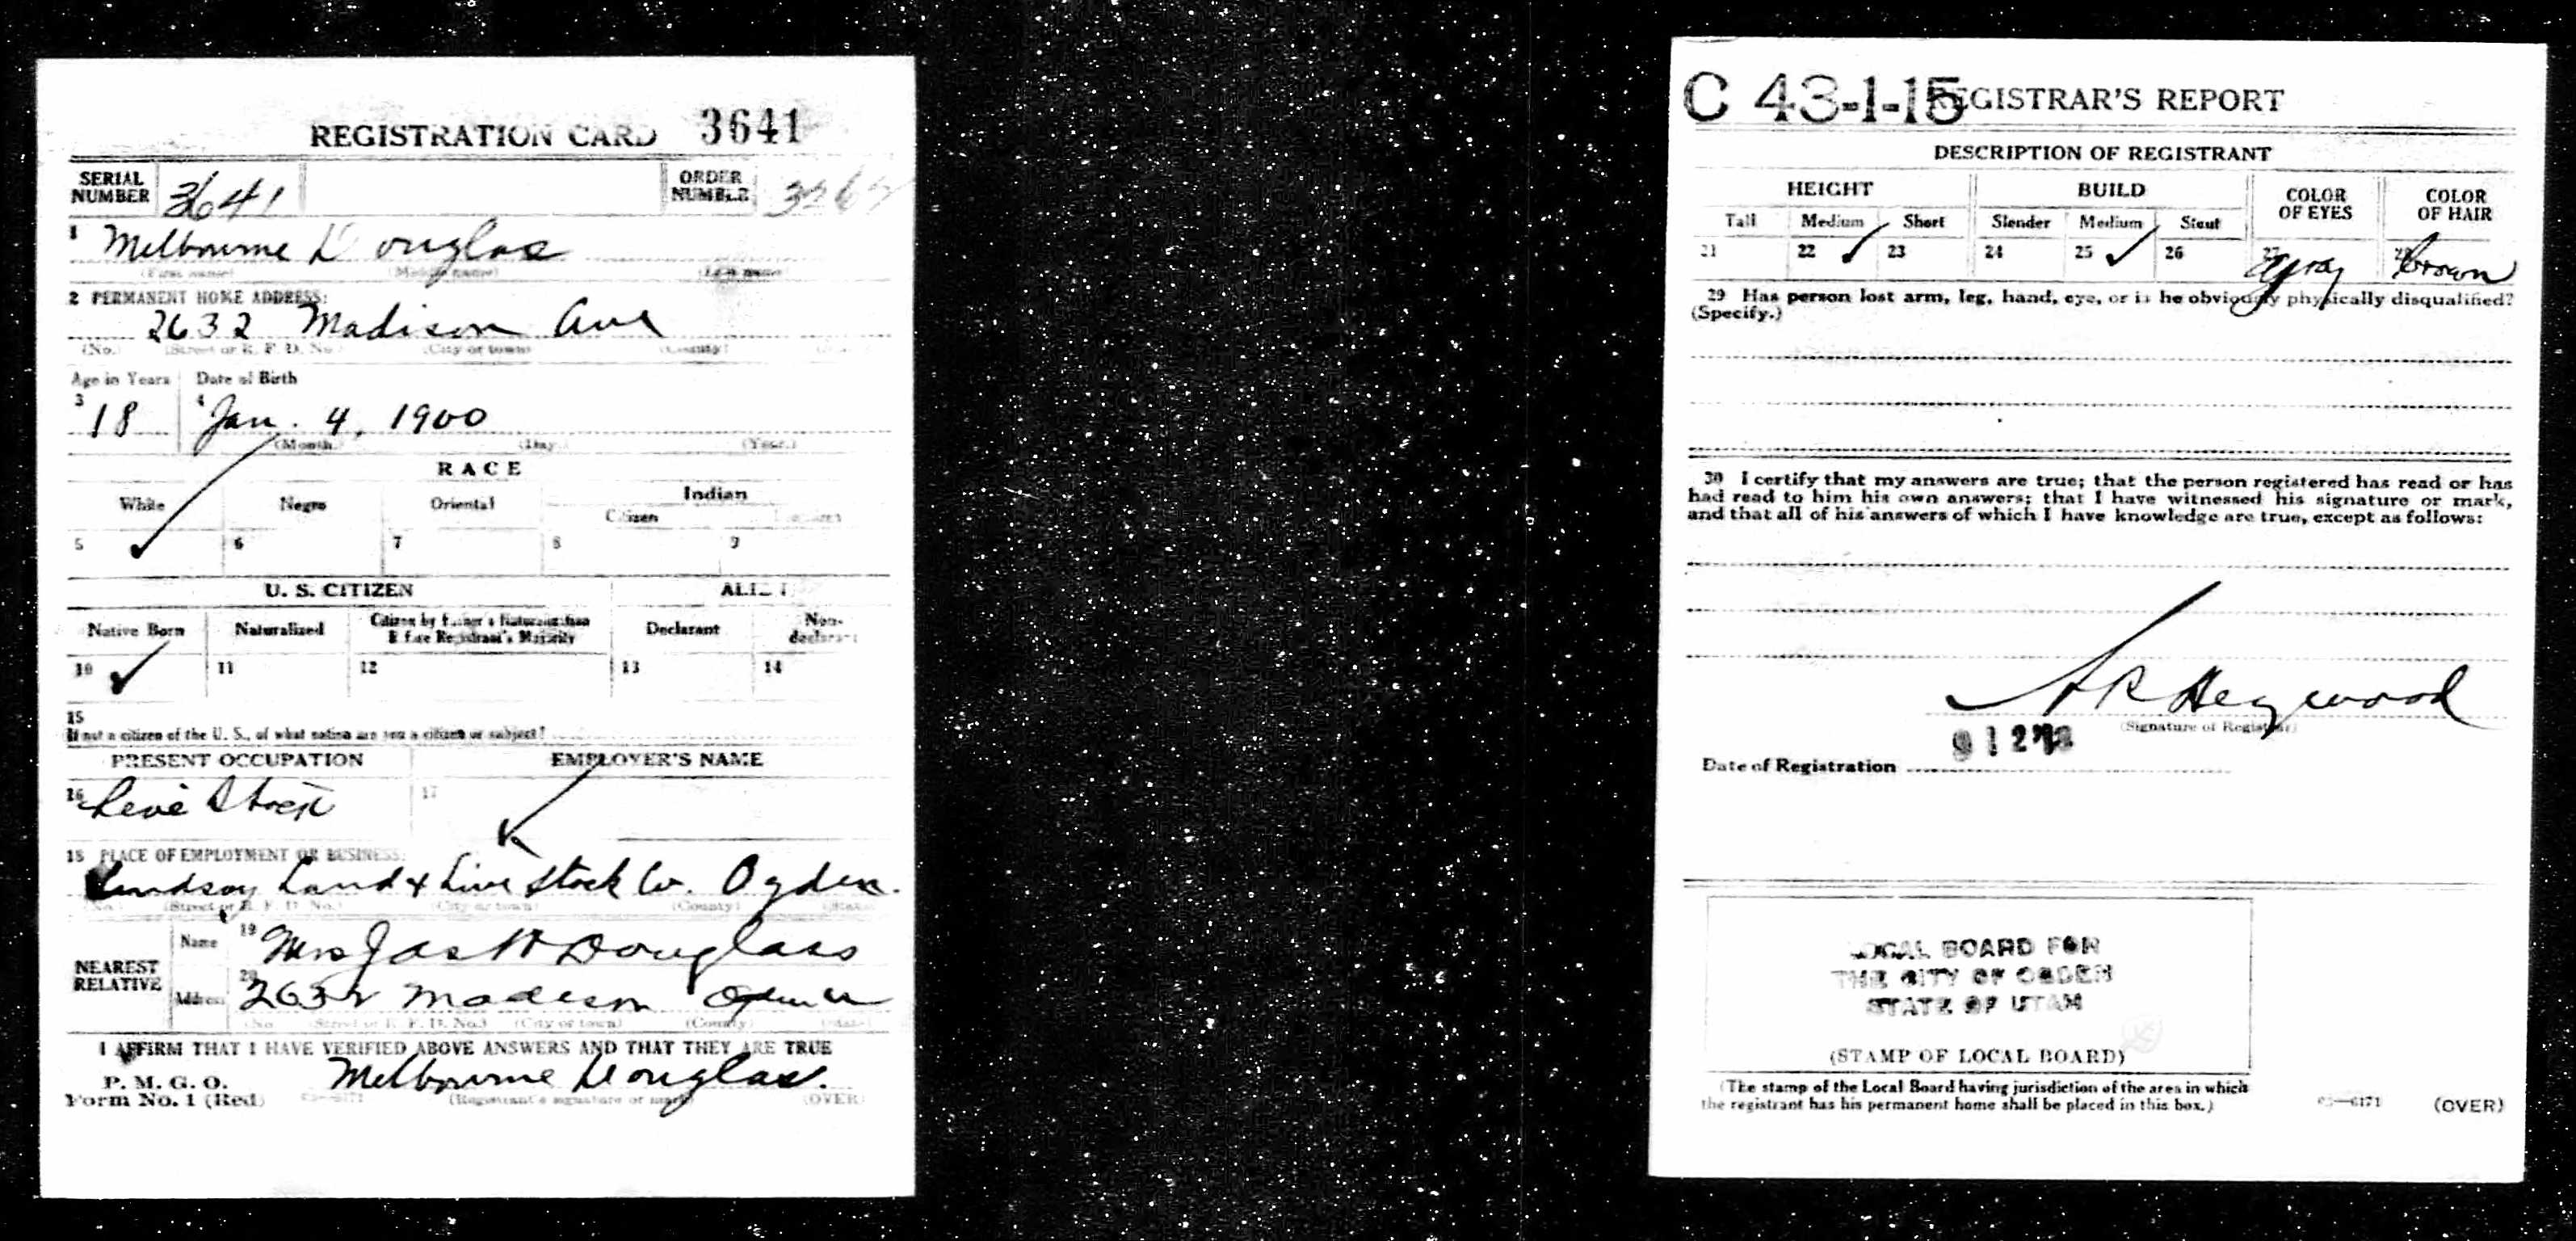 REGISTRATION CARD 3641
SERIAL NUMBER 3641 ORDER NUMBER
1 Melbourne Douglas
(First name) (Middle name) (Last name)
2 PERMANENT HOME ADDRESS:
2632 Madison Ave
(No.) (Street or R. F. D. No.) (City or town) (County)
Age in Years Date of Birth
3 18 4 Jan. 4, 1900
(Month.) (Day.) (Year.)
RACE
White Negro Oriental Indian
Citizen
5 ✓ 6 7 8 9
U. S. CITIZEN ALIEN
Native Born Naturalized Citizen by Father's Naturalization Before Registrant's Majority Declarant Non-declarant
10 ✓ 11 12 13 14
15
If not a citizen of the U. S., of what nation are you a citizen or subject?
PRESENT OCCUPATION EMPLOYER'S NAME
16 Live Stock 17
18 PLACE OF EMPLOYMENT OR BUSINESS:
Lindsay Land & Live Stock Co. Ogden.
(No.) (Street or R. F. D. No.) (City or town) (County) (State)
NEAREST RELATIVE Name 19 Mrs Jas H Douglass
Address 20 2632 Madison Ogden
(No.) (Street or R. F. D. No.) (City or town) (County) (State)
I AFFIRM THAT I HAVE VERIFIED ABOVE ANSWERS AND THAT THEY ARE TRUE
P. M. G. O.
Form No. 1 (Red) Melbourne Douglas.
(Registrant's signature or mark) (OVER)
C 43-1-15 REGISTRAR'S REPORT
DESCRIPTION OF REGISTRANT
HEIGHT BUILD COLOR OF EYES COLOR OF HAIR
Tall Medium Short Slender Medium Stout
21 22 ✓ 23 24 25 ✓ 26 27 Gray 28 brown
29 Has person lost arm, leg, hand, eye, or is he obviously physically disqualified?
(Specify.)
30 I certify that my answers are true; that the person registered has read or has
had read to him his own answers; that I have witnessed his signature or mark,
and that all of his answers of which I have knowledge are true, except as follows:
Heywood
(Signature of Registrar)
Date of Registration
LOCAL BOARD FOR
THE CITY OF OGDEN
STATE OF UTAH
(STAMP OF LOCAL BOARD)
(The stamp of the Local Board having jurisdiction of the area in which
the registrant has his permanent home shall be placed in this box.)
03—6171 (OVER)